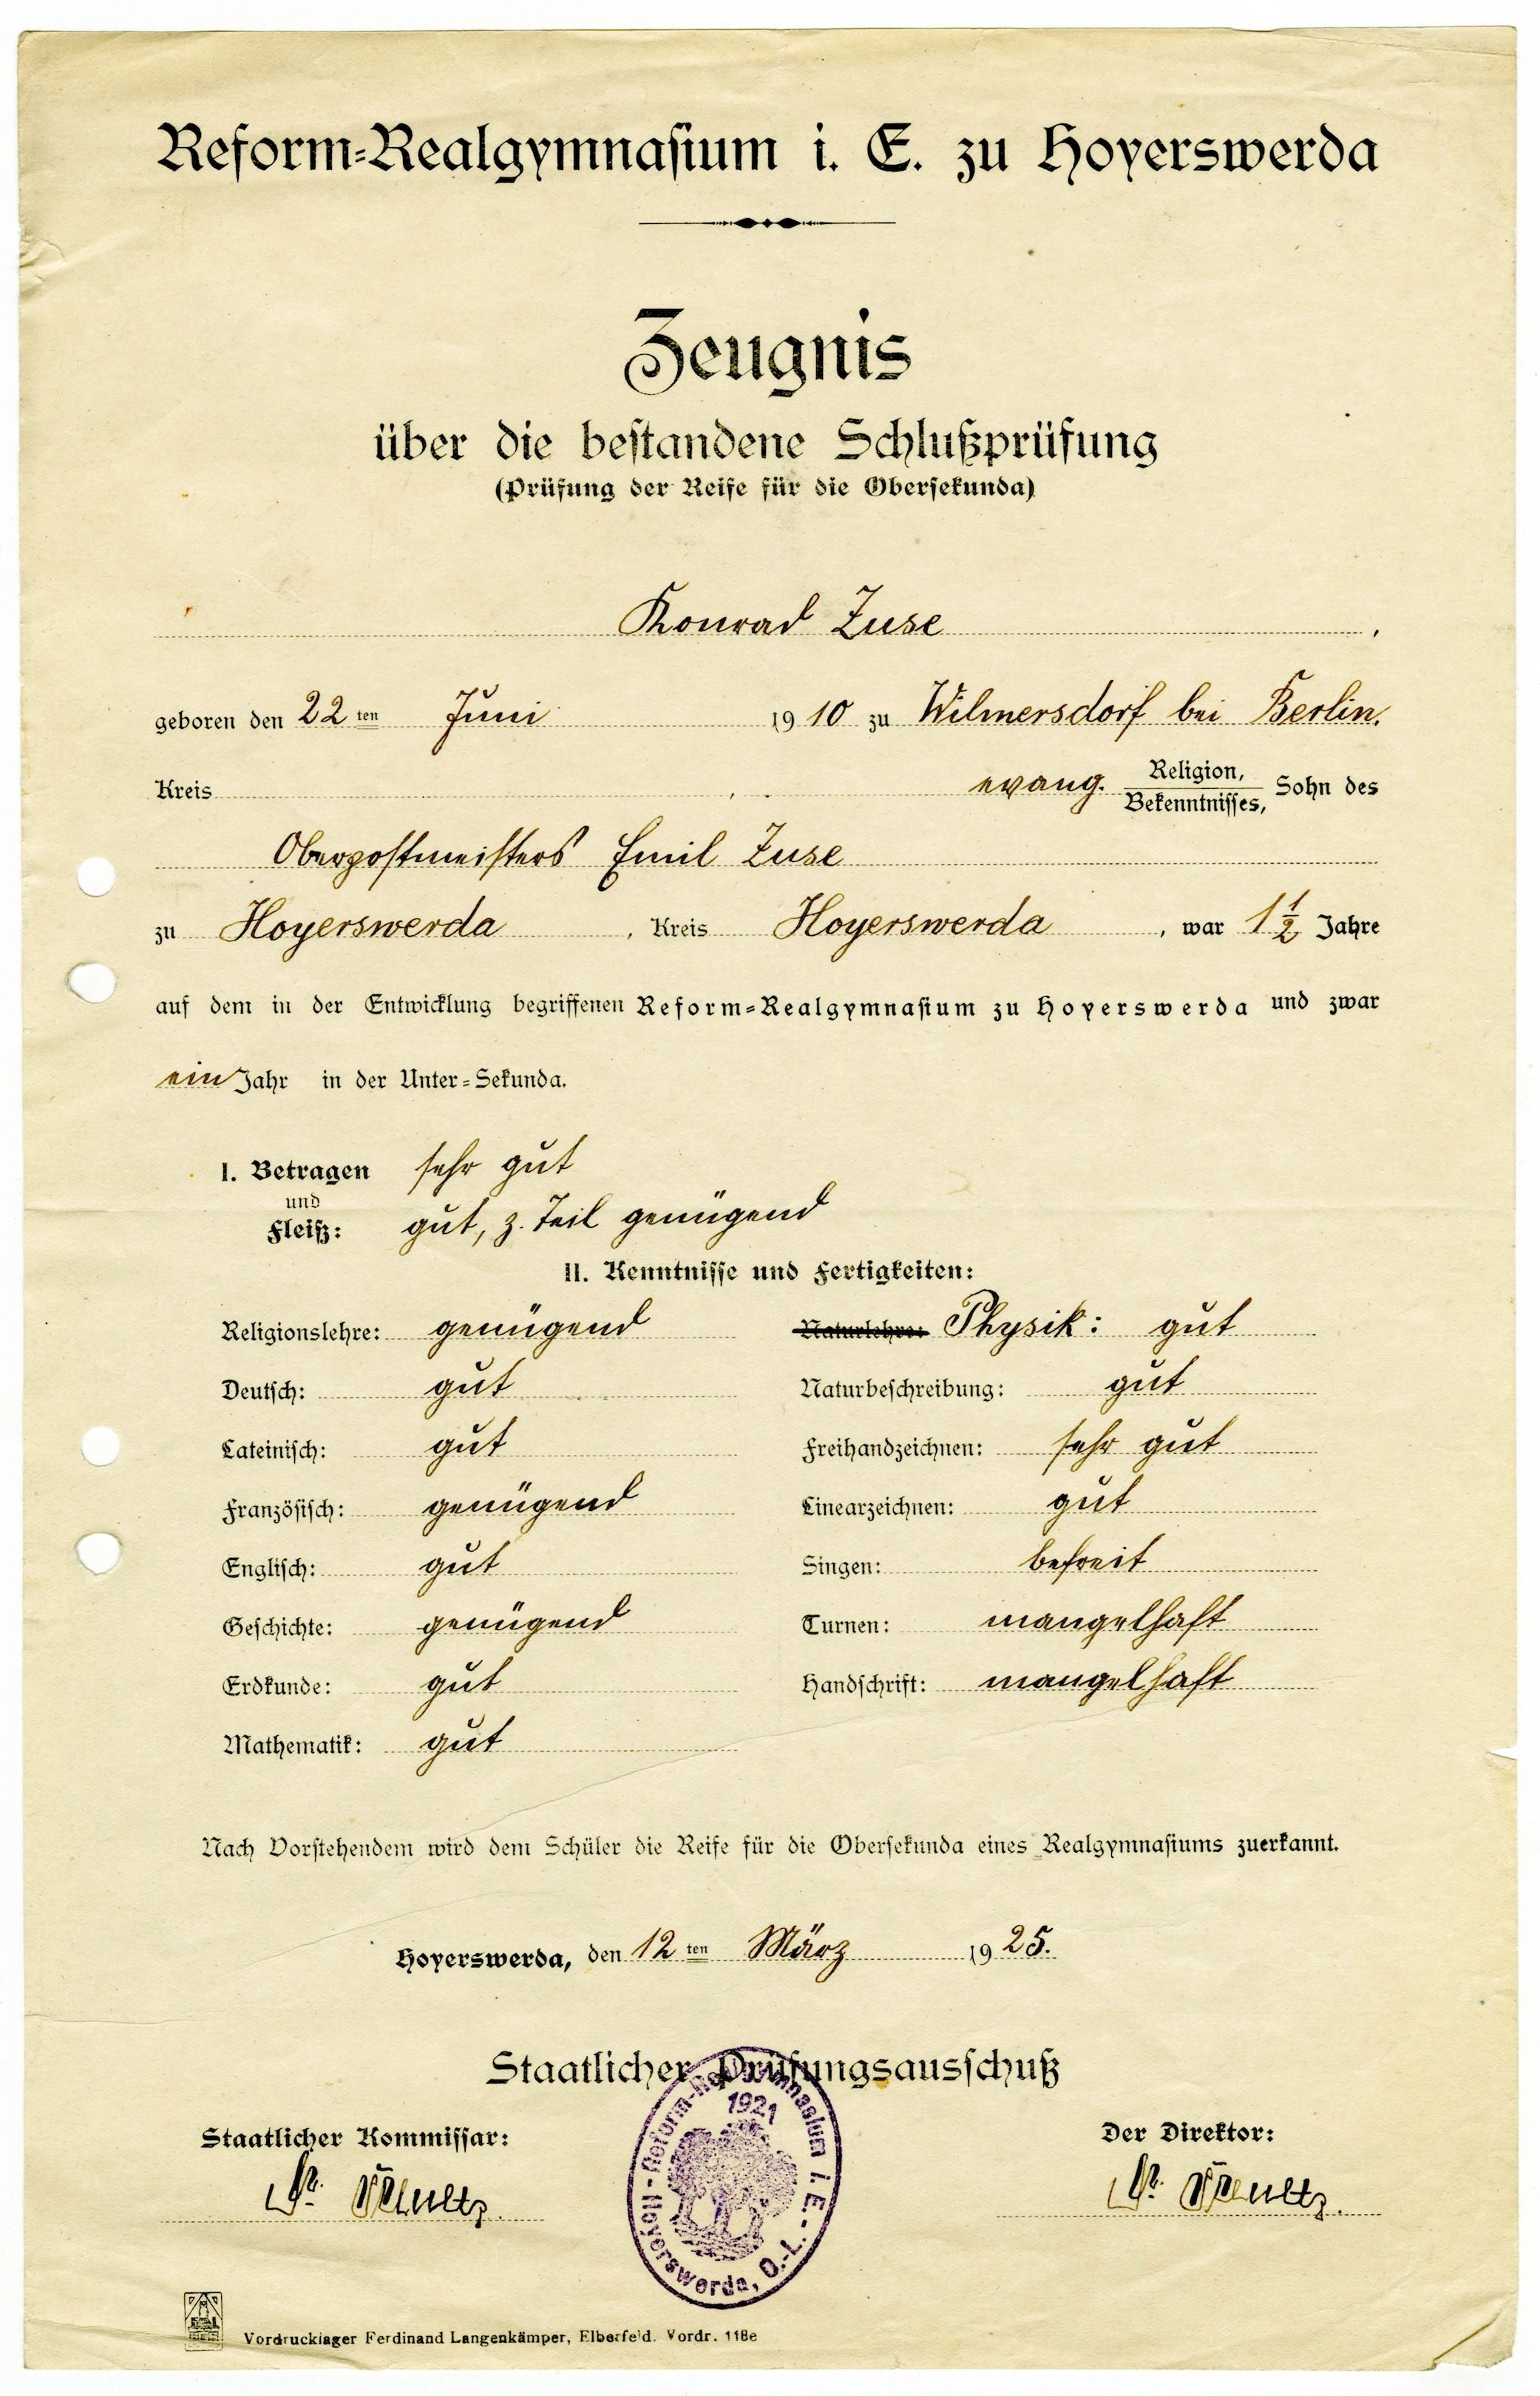 Reform-Realgymnasium i. E. zu Hoyerswerda
Zeugnis
über die bestandene Schlußprüfung
(Prüfung der Reife für die Obersekunda)
Konrad Zuse,
geboren den 22 ten Juni 1910 zu Wilmersdorf bei Berlin.
Kreis , evang. Religion, Bekenntnisses, Sohn des
Oberpostmeisters Emil Zuse
zu Hoyerswerda, Kreis Hoyerswerda, war 1 1/2 Jahre
auf dem in der Entwicklung begriffenen Reform-Realgymnasium zu Hoyerswerda und zwar
ein Jahr in der Unter-Sekunda.
I. Betragen sehr gut
und
Fleiß: gut, z. Teil genügend
II. Kenntnisse und Fertigkeiten:
Religionslehre: genügend
Deutsch: gut
Lateinisch: gut
Französisch: genügend
Englisch: gut
Geschichte: genügend
Erdkunde: gut
Mathematik: gut
Naturlehre: Physik: gut
Naturbeschreibung: gut
Freihandzeichnen: sehr gut
Linearzeichnen: gut
Singen: befreit
Turnen: mangelhaft
Handschrift: mangelhaft
Nach Vorstehendem wird dem Schüler die Reife für die Obersekunda eines Realgymnasiums zuerkannt.
Hoyerswerda, den 12 ten März 1925.
Staatlicher Prüfungsausschuß
Staatlicher Kommissar:
Der Direktor:
Reform-Realgymnasium i. E. - Hoyerswerda, O.-L.
1921
Vordrucklager Ferdinand Langenkämper, Elberfeld. Vordr. 118e